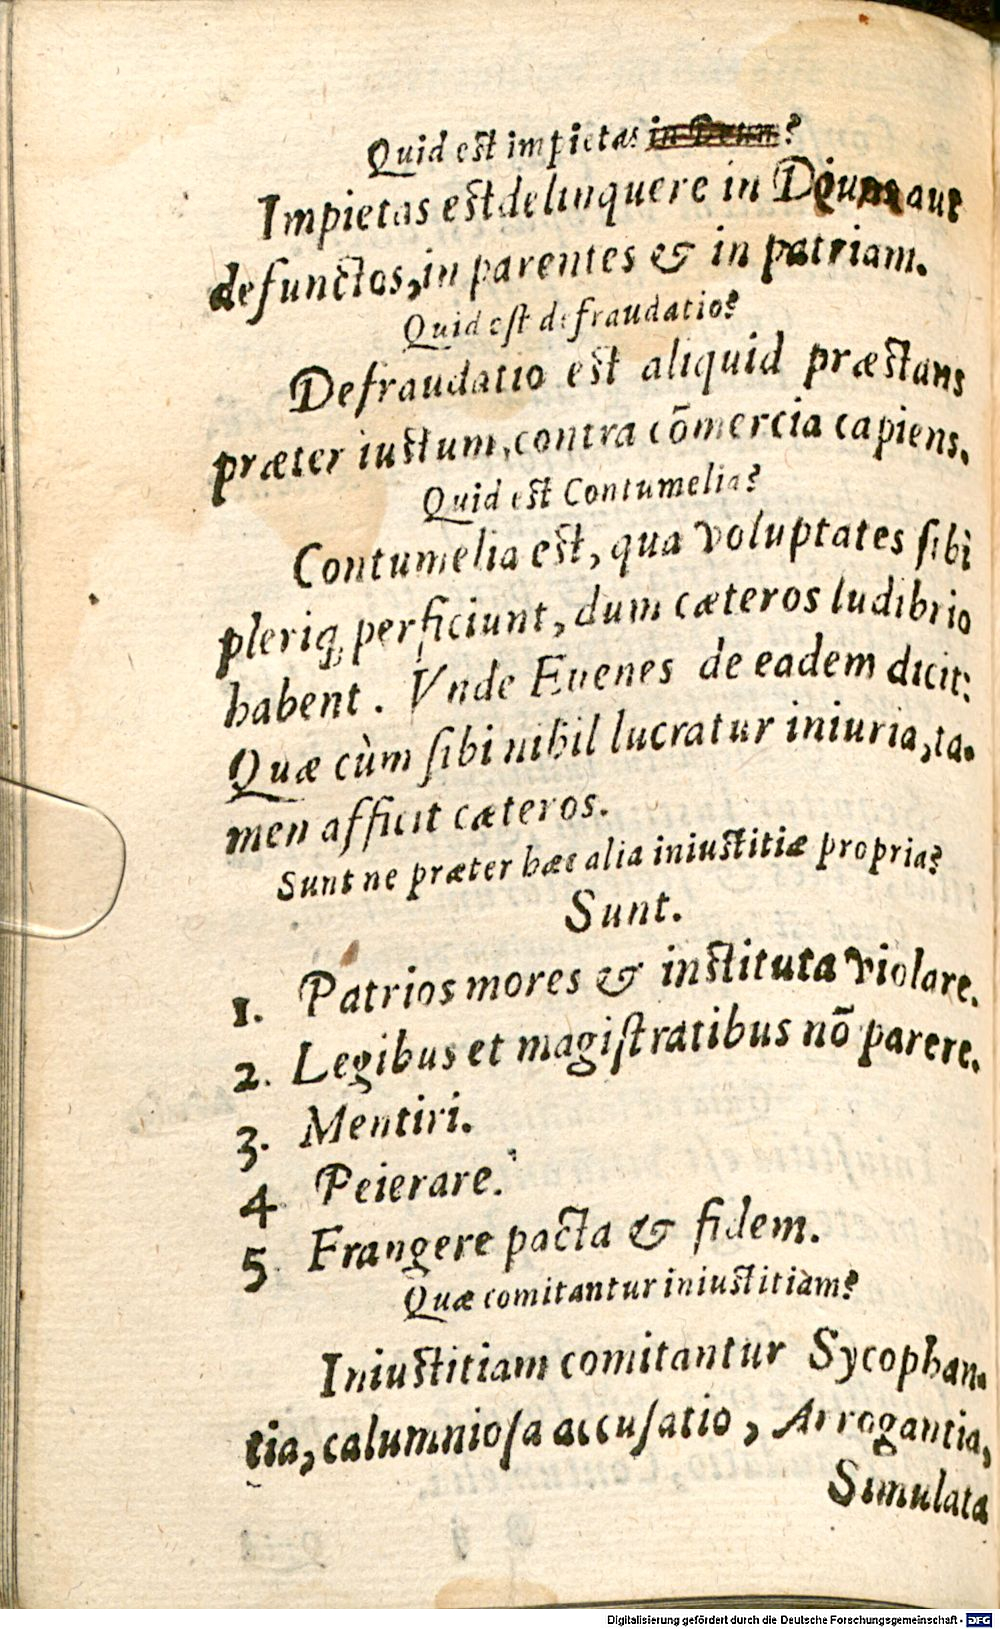 Quid est impietas in Deum?
Impietas est delinquere in Diuos aut
defunctos, in parentes & in patriam.
Quid est defraudatio?
Defraudatio est aliquid præstans
præter iustum, contra cõmercia capiens.
Quid est Contumelia?
Contumelia est, qua voluptates sibi
pleriq; perficiunt, dum cæteros ludibrio
habent. Vnde Euenes de eadem dicit:
Quæ cùm sibi nihil lucratur iniuria, ta-
men afficit cæteros.
Sunt ne præter hæc alia iniustitiæ propria?
Sunt.
1. Patrios mores & instituta violare.
2. Legibus et magistratibus nõ parere.
3. Mentiri.
4 Peierare.
5. Frangere pacta & fidem.
Quæ comitantur iniustitiam?
Iniustitiam comitantur Sycophan-
tia, calumniosa accusatio, Arrogantia,
Simulata
Digitalisierung gefördert durch die Deutsche Forschungsgemeinschaft - DFG